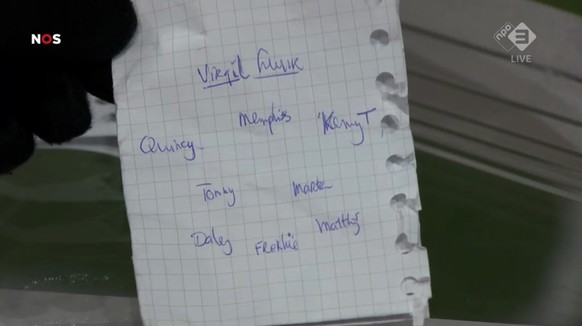 NOS
npo 3
LIVE
Virgil Luuk
Memphis
Kenny T
Quincy
Tonny
Marten
Daley
Frenkie
Matthijs